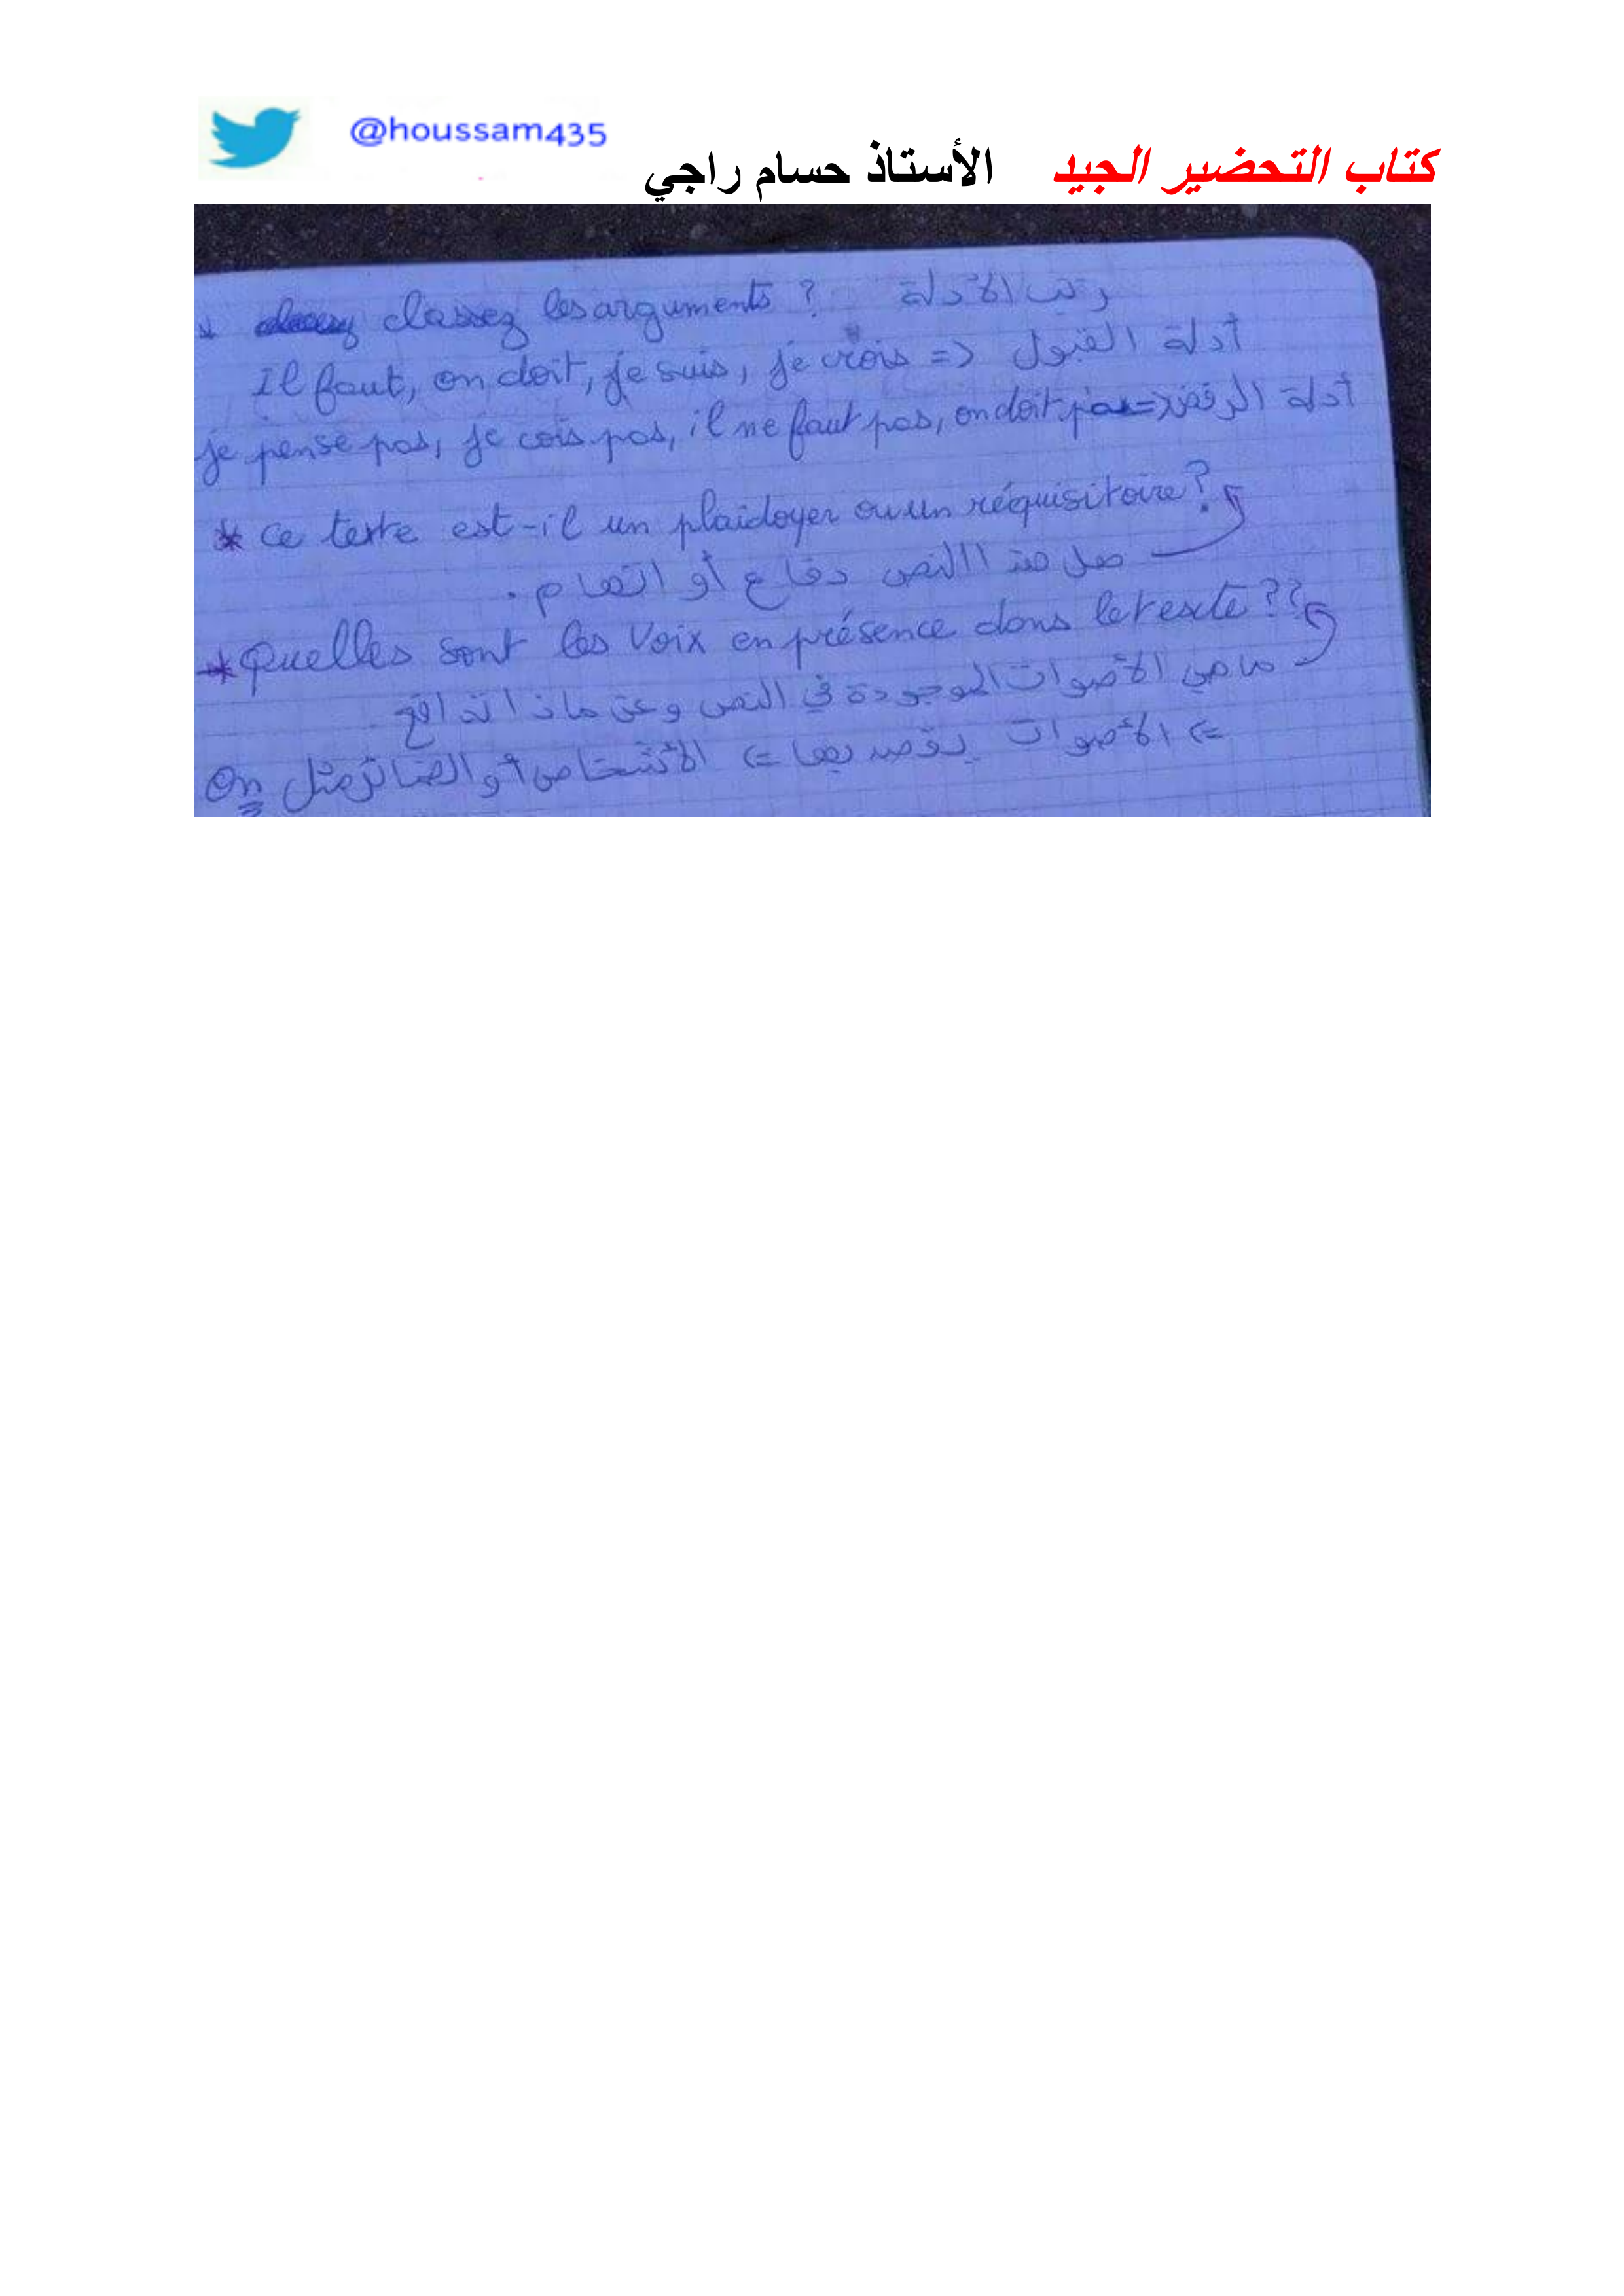 @houssam435
كتاب التحضير الجيد الأستاذ حسام راجي
classez les arguments ? رتب الأدلة
Il faut, on doit, je suis, je crois => أدلة القبول
je pense pas, je cois pas, il ne faut pas, on doit pas => أدلة الرفض
* ce texte est-il un plaidoyer ou un réquisitoire ?
هل هذا النص دفاع أو اتهام .
* Quelles sont les Voix en présence dans le texte ??
ما هي الأصوات الموجودة في النص وعن ماذا تدافع
=> الأصوات يقصد بها => الأشخاص أو الضمائر مثل On